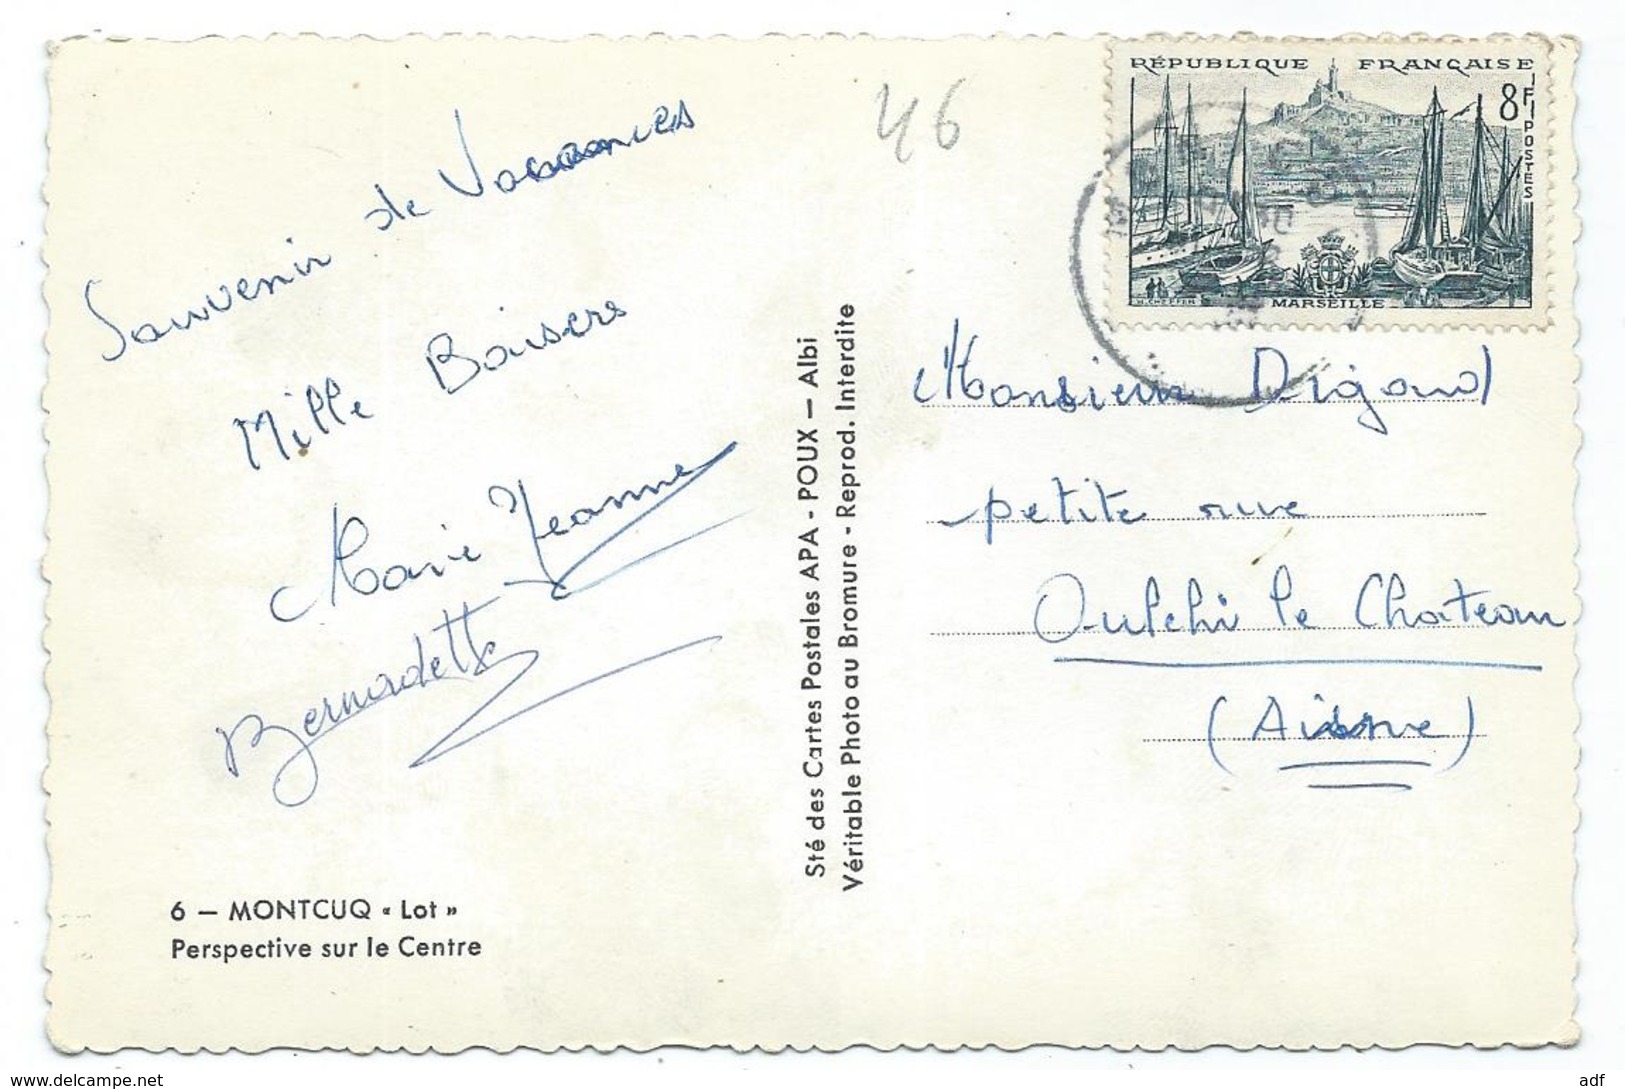 46
RÉPUBLIQUE FRANÇAISE
8F
POSTES
MARSEILLE
Souvenir de Vacances
Mille Baisers
Marie Jeanne
Bernadette
6 — MONTCUQ « Lot »
Perspective sur le Centre
Sté des Cartes Postales APA - POUX — Albi
Véritable Photo au Bromure - Reprod. Interdite
Monsieur Digard
petite rue
Oulchi le Chateau
(Aisne)
www.delcampe.net
adf